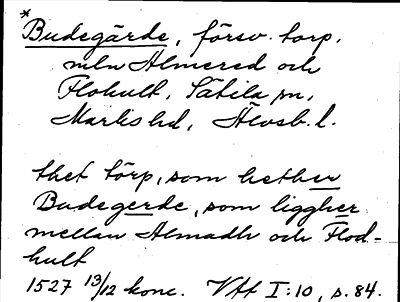 *Budegärde, försv. torp.
mln Almered och
Flohult, Sätila sn,
Marks hd, Älvsb. l.
thet törp, som hether
Budegerde, som liggher
mellan Almadh och Flod-
hult
1527 13/12 konc. VHH I:10, s. 84.